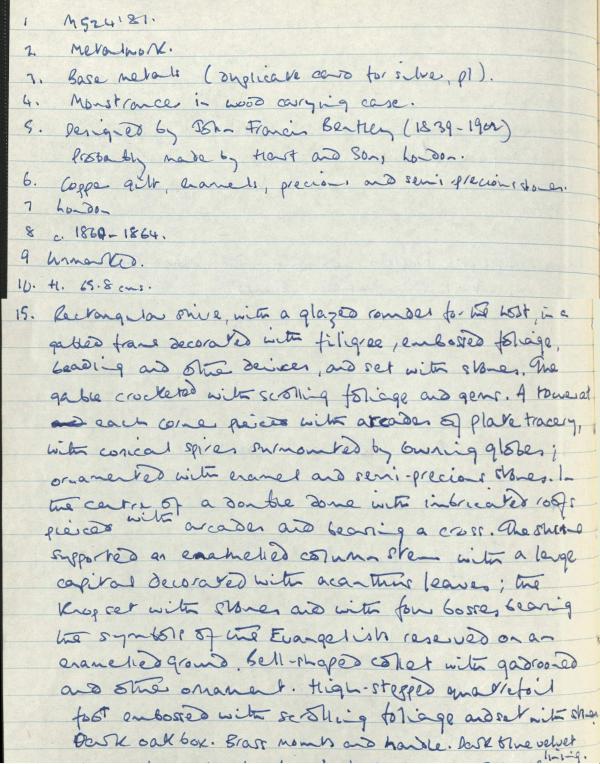 1 M524'81.
2. Metalwork.
3. Base metals (duplicate card for silver, pl).
4. Monstrances in wood carrying case.
5. Designed by John Francis Bentley (1839-1902)
Probably made by Hart and Son, London.
6. Copper gilt, enamels, precious and semi-precious stones.
7 London
8 c. 1860-1864.
9 Unmarked.
10. H. 65.8 cms.
15. Rectangular shrine, with a glazed roundel for the host, in a
gabled frame decorated with filigree, embossed foliage,
beading and other devices, and set with stones. The
gable crocketed with scrolling foliage and gems. A tower at
and each corner pierced with arcades of plate tracery,
with conical spires surmounted by owning globes;
ornamented with enamel and semi-precious stones. In
the centre of a double dome with imbricated roofs
pierced with arcades and bearing a cross. The shrine
supported an enamelled column stem with a large
capital decorated with acanthus leaves; the
knop set with stones and with four bosses bearing
the symbols of the Evangelists reserved on an
enamelled ground. Bell-shaped collet with gadrooned
and other ornament. High-stepped quatrefoil
foot embossed with scrolling foliage and set with stones
Dark oak box. Brass mounts and handle. Dark blue velvet
lining.